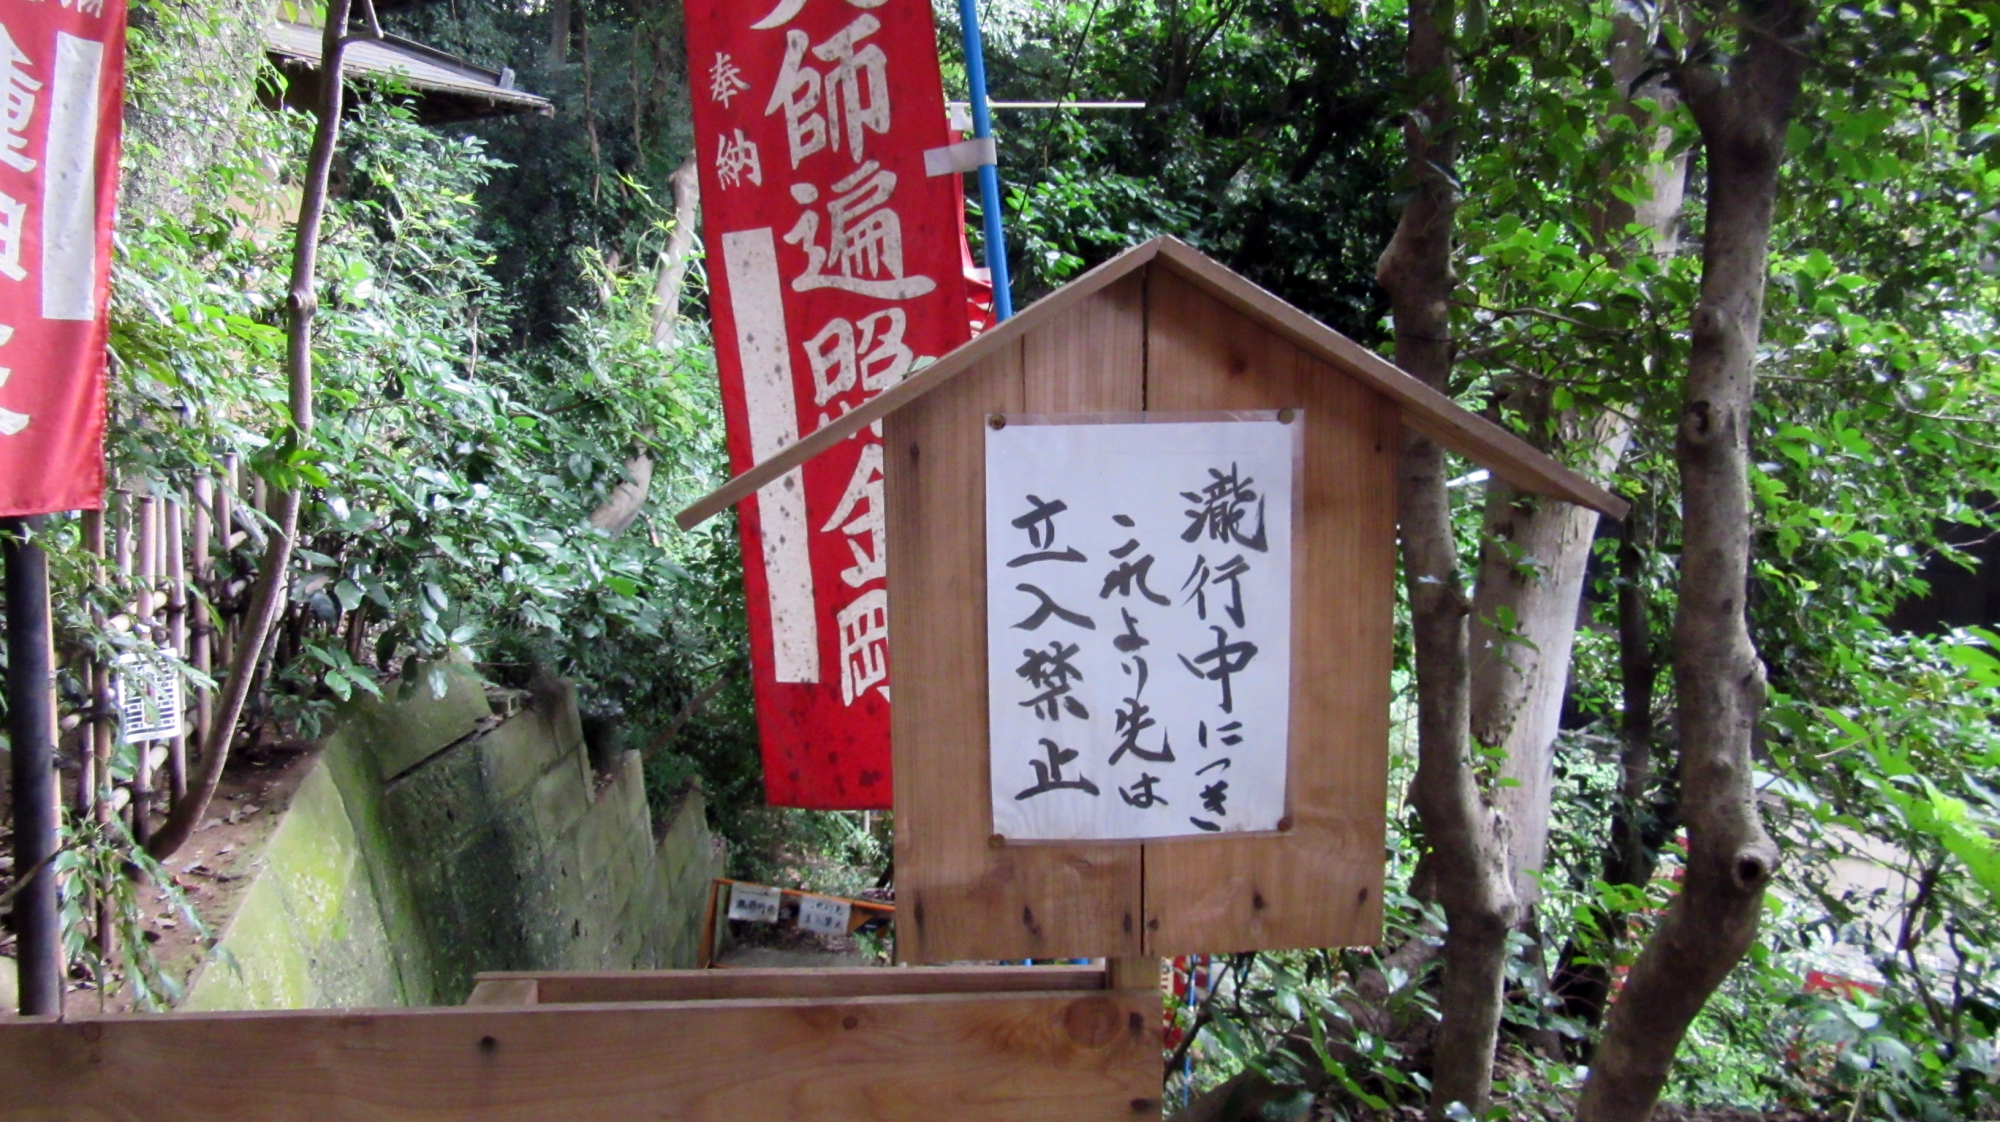 瀧行中につき
これより先は
立入禁止
師遍照金剛
奉納